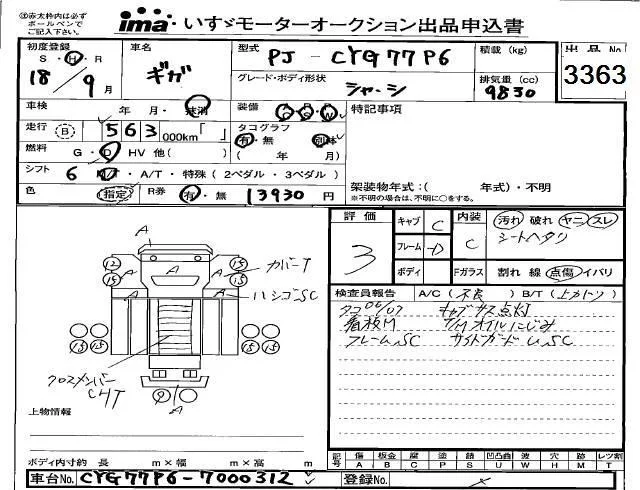 ㊟赤太枠内は必ず
ボールペンで
ご記入下さい。
ima・いすゞモーターオークション出品申込書
初度登録 S・H 18年 9月
車名 ギガ
型式 PJ - CYG77P6
積載 (kg)
グレード・ボディ形状 シャーシ
排気量 (cc) 9830
出品No
3363
車検 年 月・抹消
装備 A S W
特記事項
走行 B 563000km「 」
タコグラフ 有・無 別体
( 年 月)
燃料 G・D HV 他( )
シフト 6 M/T・A/T・特殊 (2ペダル・3ペダル)
架装物年式:( 年式)・不明
※不明の場合は、不明に○をする。
色 指定
R券 有・無 13930円
評価 3
キャブ C
フレーム D
ボディ
内装 C
Fガラス
汚れ 破れ ヤニ スレ
シートヘタリ
割れ 線 点傷 イバリ
検査員報告 A/C (不良) B/T (上カトリ)
タコ06/07 キャブサス点灯
看板M T/Mオイルにじみ
フレームSC サイドガードU,SC
A
12 15 15 15
A A A A
カバーT
ハシゴSC
15 15 15 15
クロスメンバー
CHT
9
A
上物情報
ボディ内寸約 長 m×幅 m×高 m
記号 傷 板金 腐 塗 錆 凹凸曲 波 穴 跡 レツ割
A B C P S U W H M T
車台No. CYG77P6-7000312
登録No.